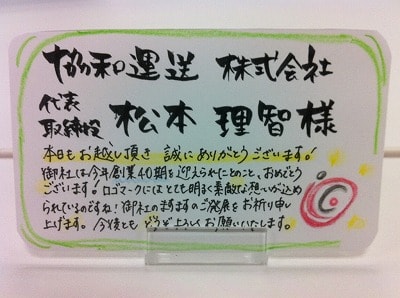 協和運送 株式会社
代表
取締役 松本 理智様
本日もお越し頂き 誠にありがとうございます!
御社は今年創業40期を迎えられたとのこと、おめでとう
ございます!ロゴマークにはとても明るく素敵な想いが込め
られているのですね!御社のますますのご発展をお祈り申し
上げます。今後ともどうぞよろしくお願いいたします。